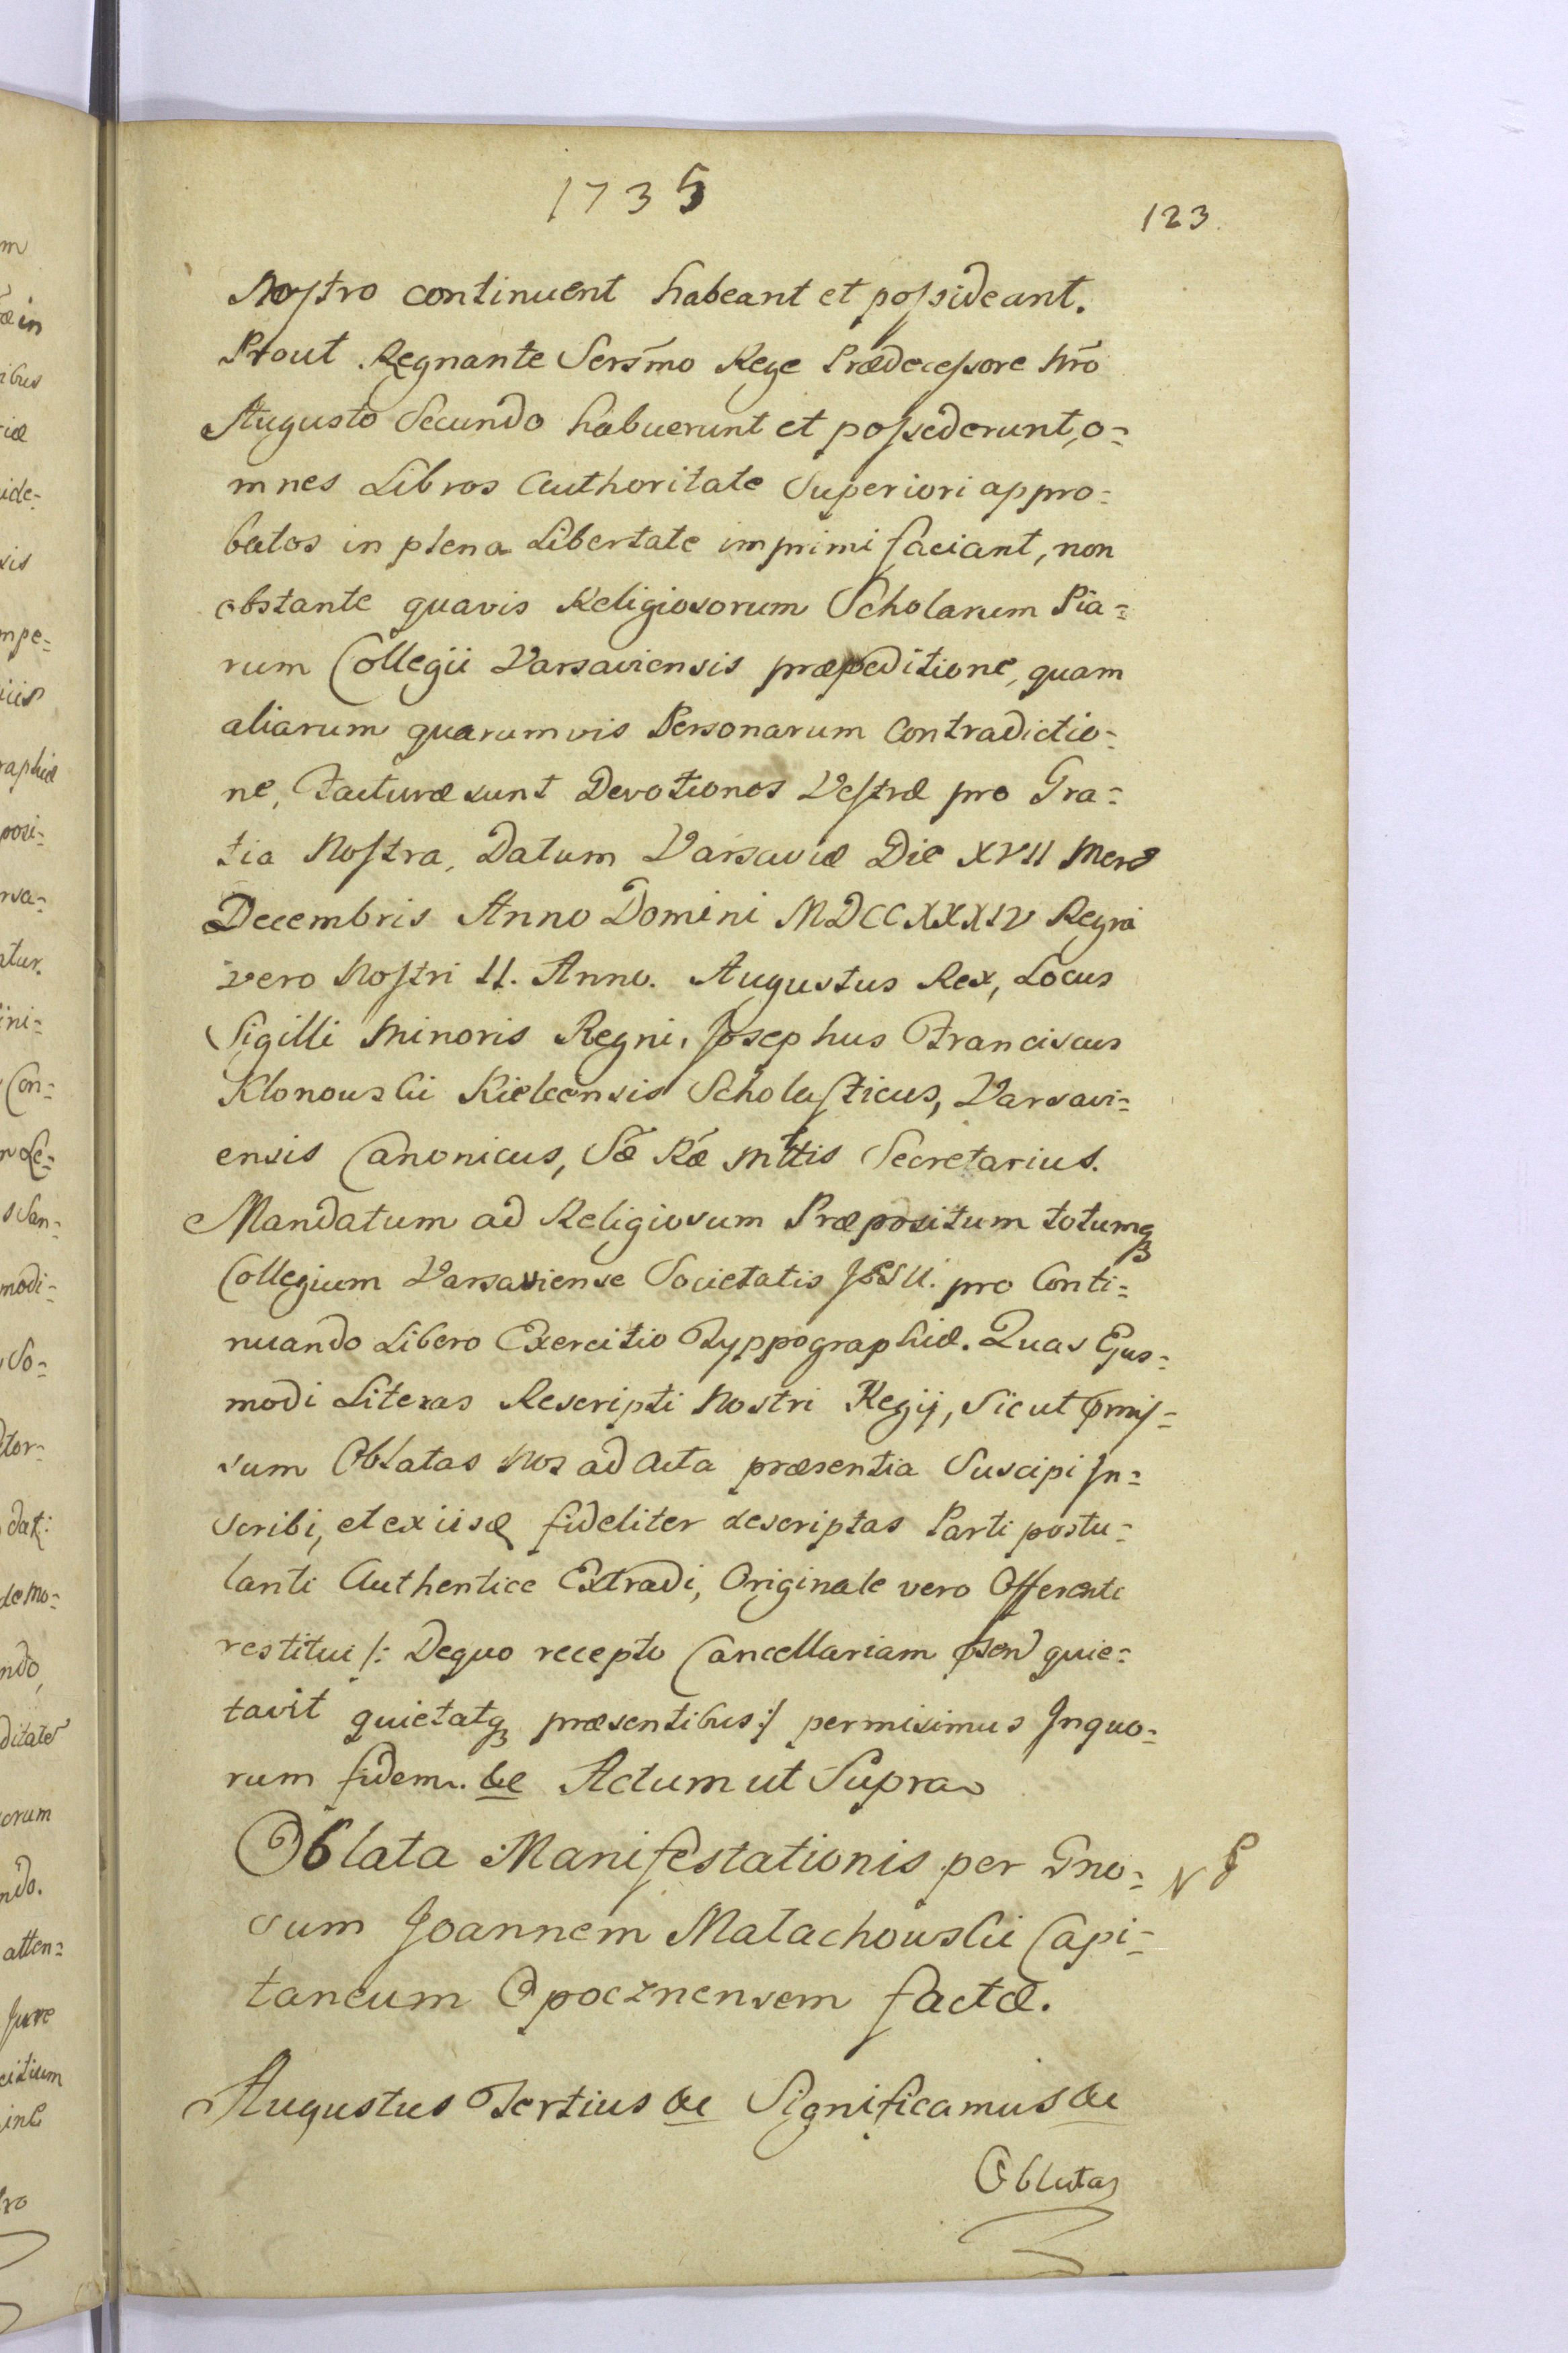 1735
123.
Nostro continuent habeant et possideant.
Prout Regnante Sersmo Rege Prædecessore Nro
Augusto Secundo habuerunt et possederunt, o=
mnes Libros Authoritate Superiori appro=
batos in plena Libertate imprimi faciant, non
obstante quavis Religiosorum Scholarum Pia=
rum Collegii Varsaviensis præpeditione, quam
aliarum quarumvis Personarum Contradictio=
ne, Facturæ sunt Devotiones Vestræ pro Gra=
tia Nostra, Datum Varsaviæ Die XVII Mens
Decembris Anno Domini MDCCXXXIV Regni
vero Nostri II. Anno. Augustus Rex, Locus
Sigilli Minoris Regni, Josephus Franciscus
Klonowski Kielcensis Scholasticus, Varsavi=
ensis Canonicus, Sæ Ræ Mttis Secretarius.
Mandatum ad Religiosum Præpositum totumq
Collegium Varsaviense Societatis JESU. pro Conti=
nuando Libero Exercitio Typpographiæ. Quas Ejus=
modi Literas Rescripti Nostri Regij, Sicut pmis=
sum Oblatas Nos ad Acta præsentia Suscipi In=
scribi, et ex iisd fideliter descriptas Parti postu=
lanti Authentice Extradi, Originale vero Offerenti
restitui /: Dequo recepto Cancellariam psen quie=
tavit quietatq præsentibus :/ permisimus Inquo=
rum fidem. &c Actum ut Supra
Oblata Manifestationis per Gno=
sum Joannem Malachowski Capi=
taneum Opocznensem factæ.
Augustus Tertius &c Significamus &c
Oblatas